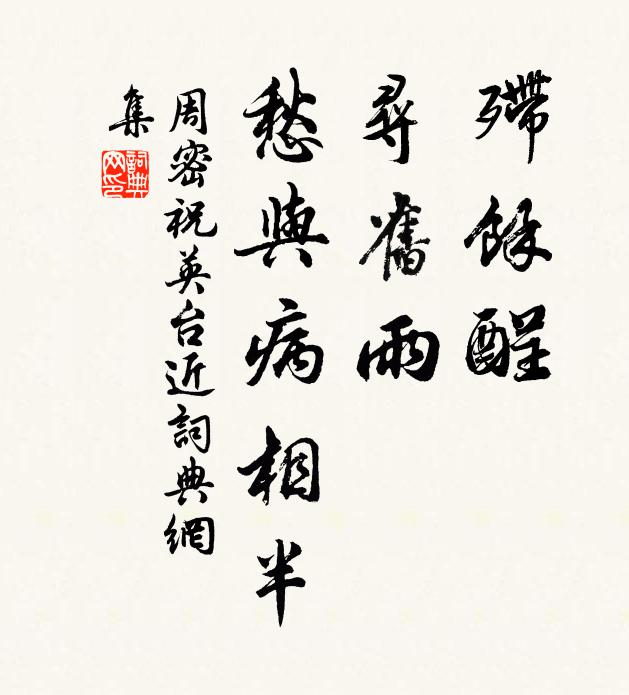 殢餘酲
尋舊雨
愁與病相半
周密祝英台近詞典網
集
詞典
网印